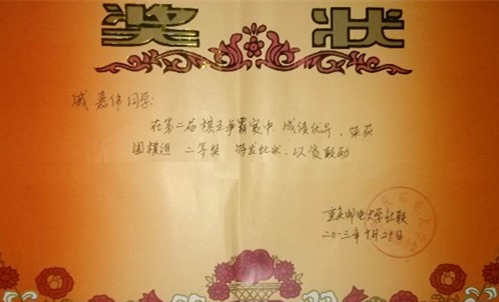 奖状
戚嘉伟同学:
在第二届棋王争霸赛中 成绩优异, 荣获
围棋组 二等奖 特发此状, 以资鼓励
重庆邮电大学社联
二〇一三年十月二十日